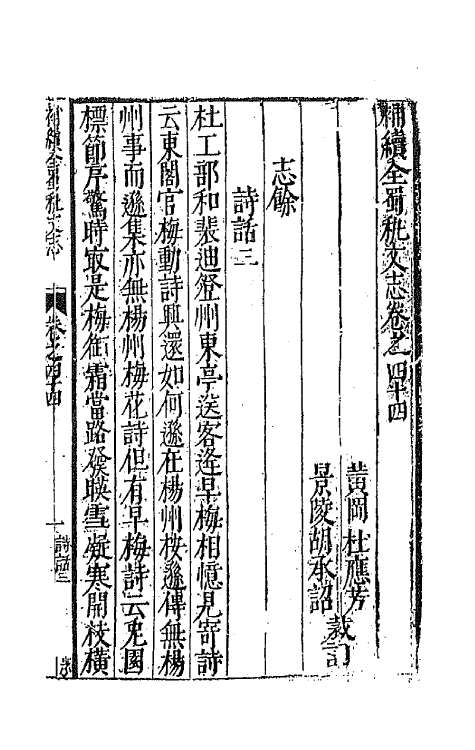 補續全蜀秇文志卷之四十四
黄岡杜應芳
景陵胡承詔裁訂
志餘
詩話二
杜工部和裴迪登州東亭送客逢早梅相憶見寄詩
云東閣官梅動詩興還如何遜在楊州按遜傳無楊
州事而遜集亦無楊州梅花詩但有早梅詩云兎園
標節序驚時㝡是梅銜霜當路發映雪凝寒開枝橫
補續全蜀秇文志
卷之四十四
一
詩話二